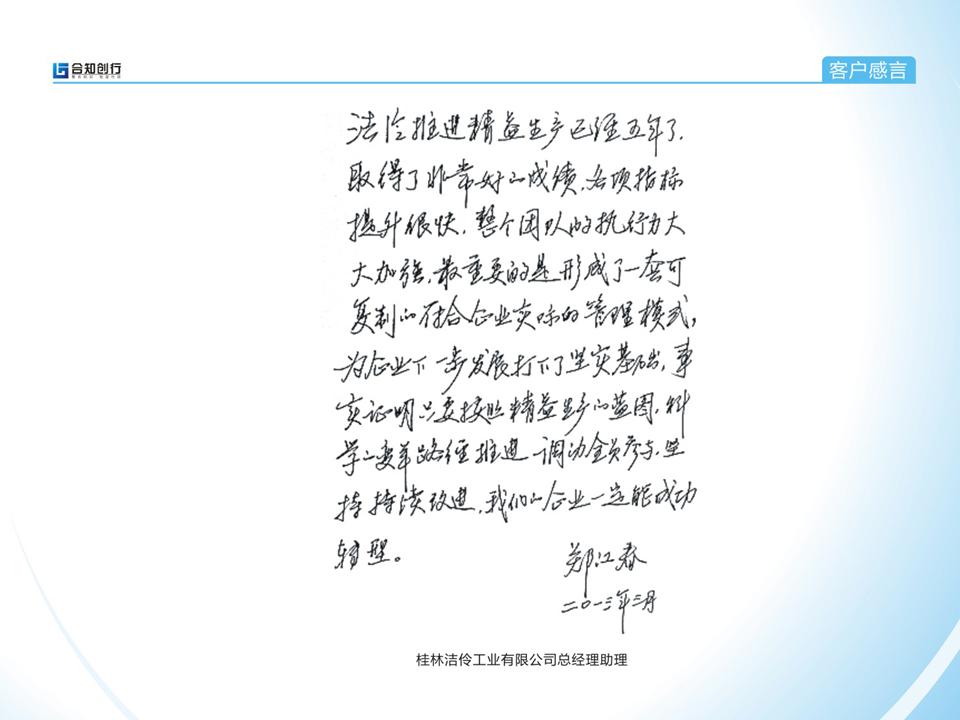 合知创行
客户感言
洁伶推进精益生产已经五年了，
取得了非常好的成绩，各项指标
提升很快，整个团队的执行力大
大加强，最重要的是形成了一套可
复制的符合企业实际的管理模式，
为企业下一步发展打下了坚实基础，事
实证明只要按照精益生产的蓝图，科
学的变革路径推进，调动全员参与，坚
持持续改进，我们的企业一定能成功
转型。
郑江春
二〇一三年三月
桂林洁伶工业有限公司总经理助理